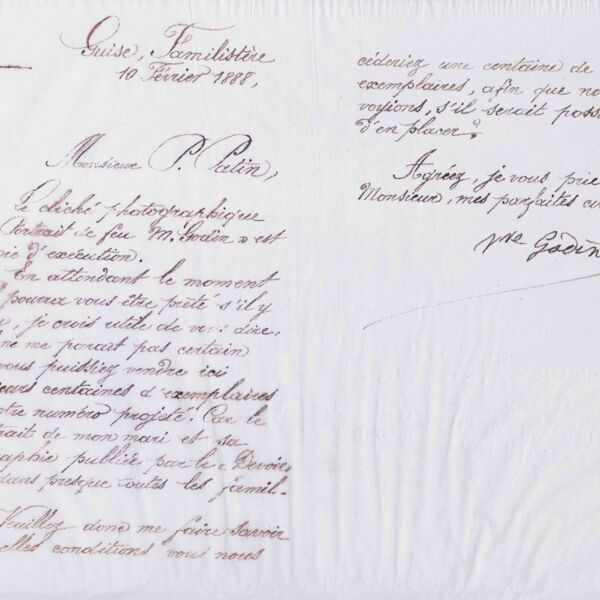 Guise, Familistère
10 Février 1888,
Monsieur P. Patin,
Le cliché photographique
Portrait de feu M. Godin » est
d'exécution.
En attendant le moment
pourra vous être prêté s'il y
, je crois utile de vous dire,
ne me parait pas certain
vous puissiez vendre ici
centaines d'exemplaires
numéro projeté. Car le
trait de mon mari et sa
raphie publiée par le « Devoir
dans presque toutes les famil-
Veuillez donc me faire savoir
elles conditions vous nous
céderiez une centaine de
exemplaires, afin que no
voyions, s'il serait poss
d'en placer?
Agréez, je vous prie
Monsieur, mes parfaites ci
Vve Godin